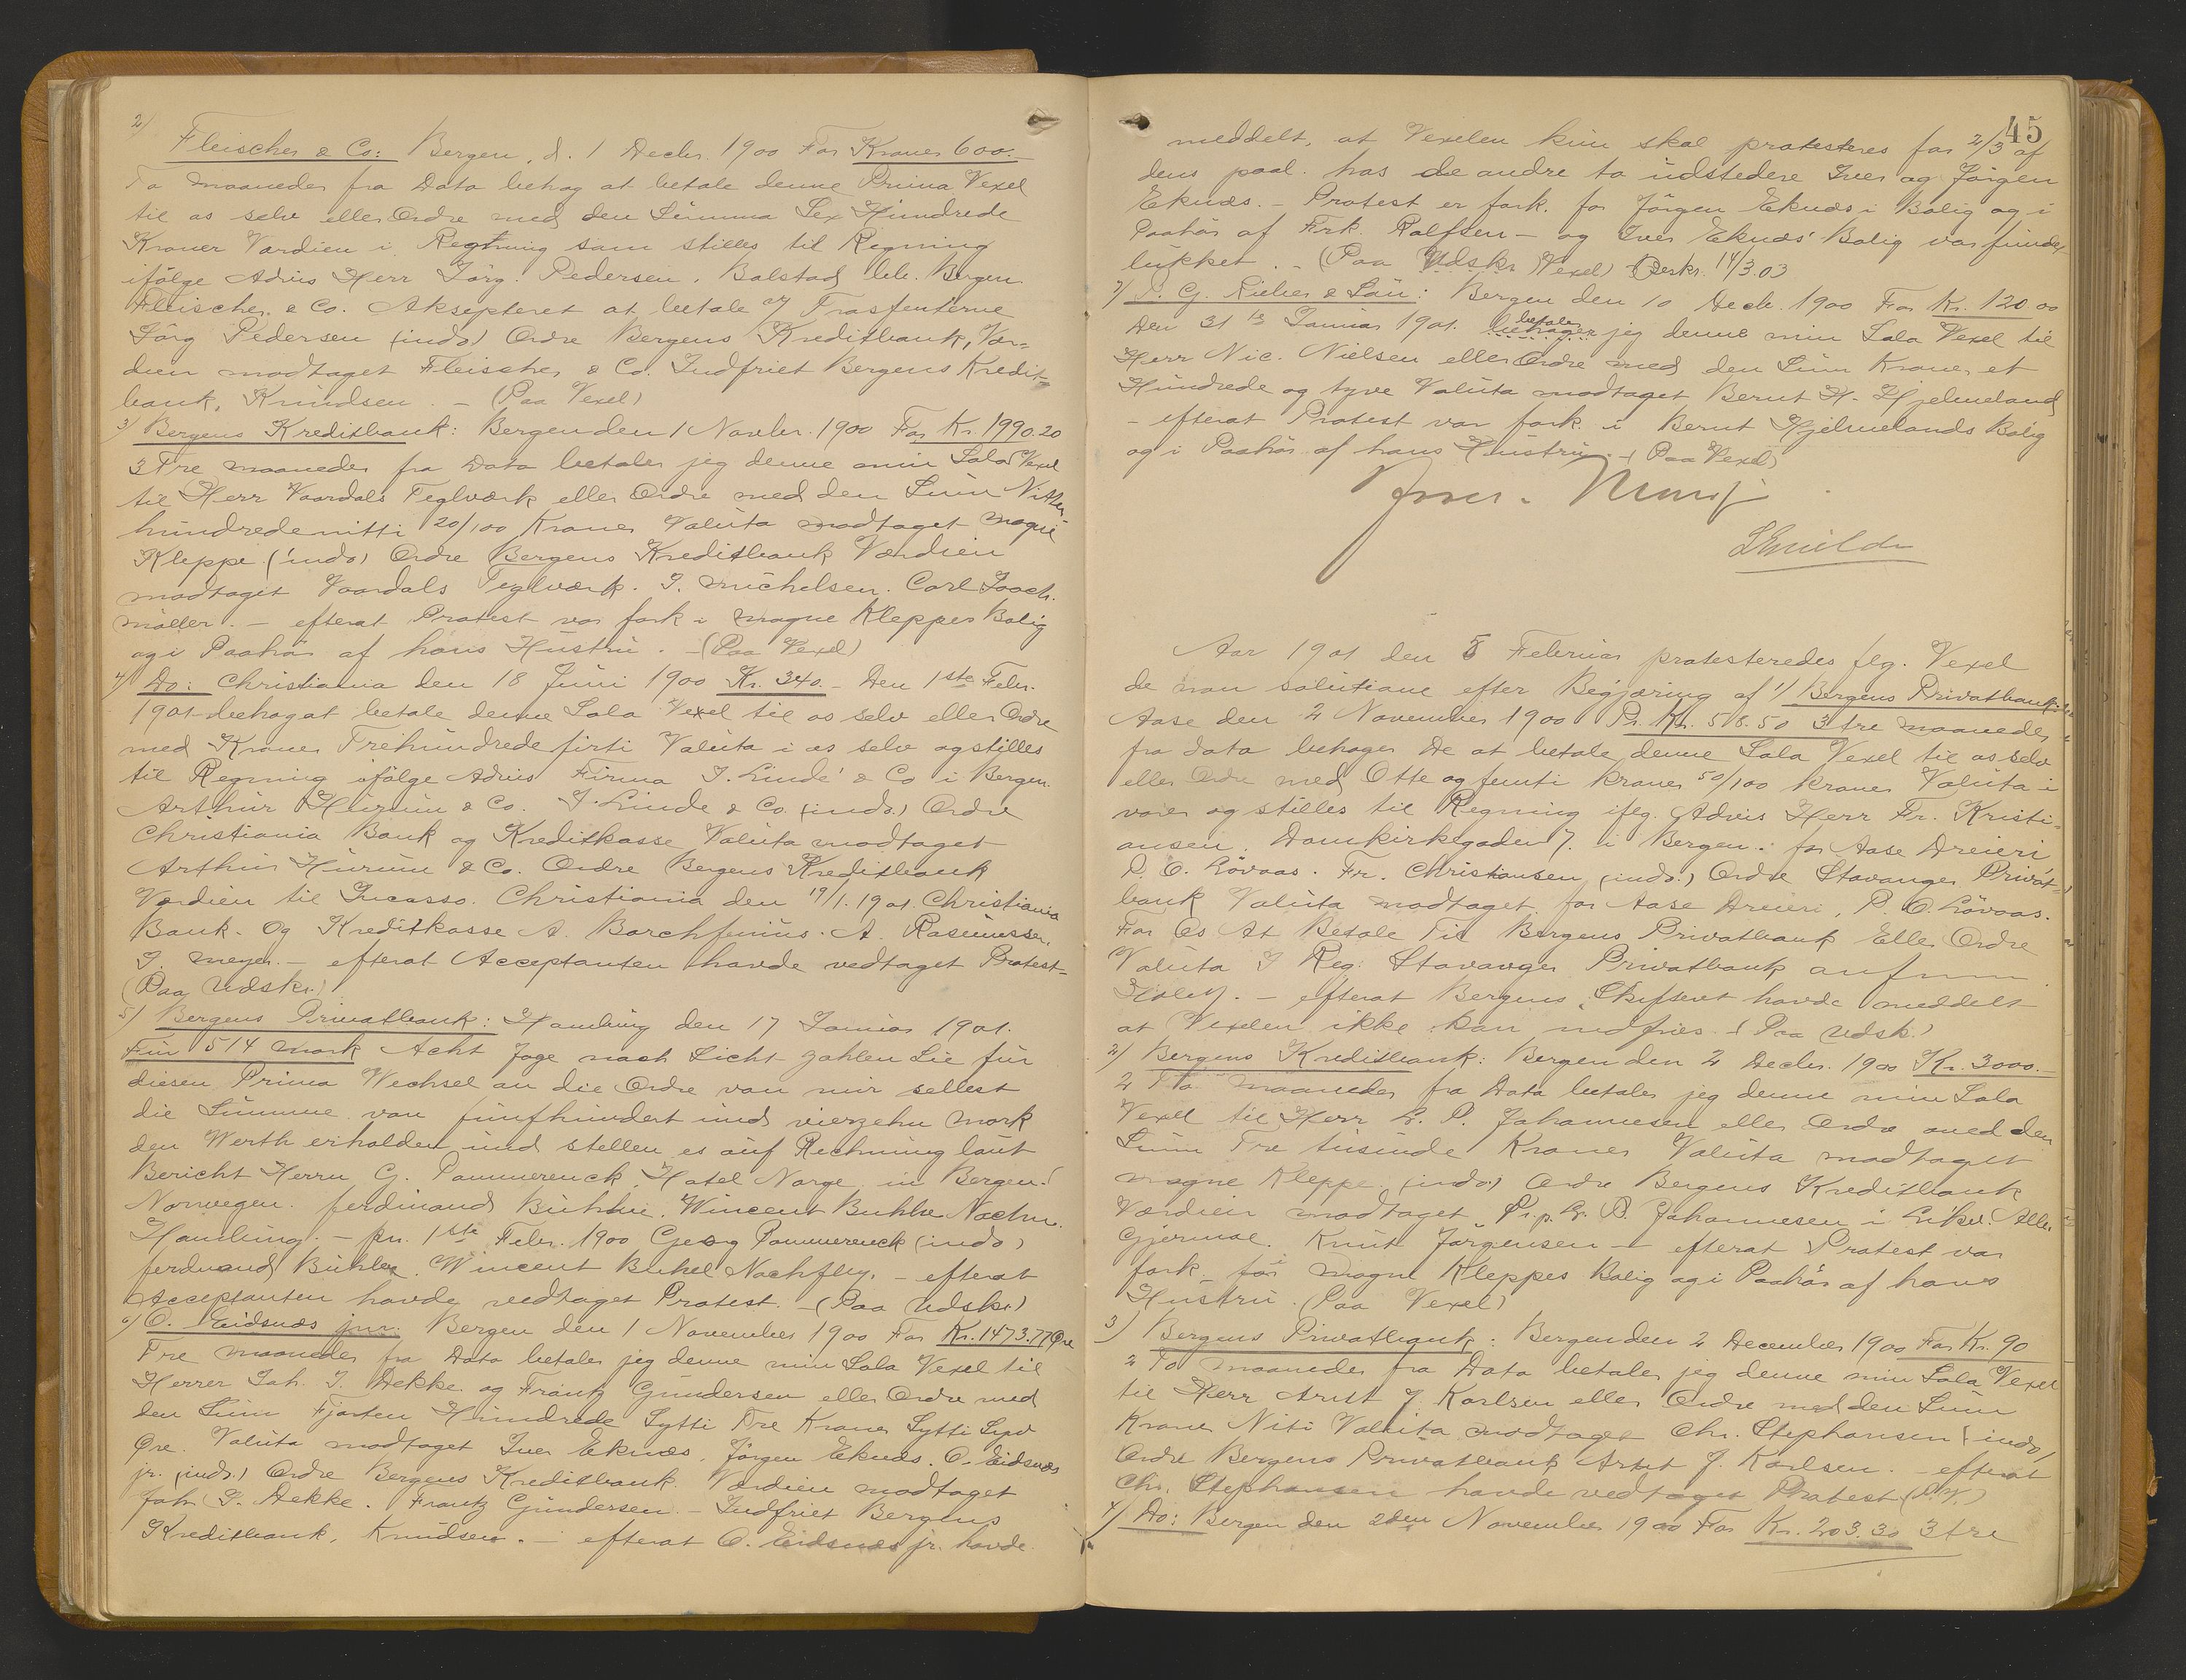 2)
Fleischer & Co: Bergen, d. 1 Decbr. 1900 For Kroner 600.-
To maaneder fra Dato behag at betale denne Prima Vexel
til os selv eller Ordre med den Summa Sex Hundrede
Kroner Værdien i Regning som stilles til Regning
ifölge Advis Herr Jörg. Pedersen, Balstad Bergen
Fleischer & Co. Aksepteret at betale
Jörg Pedersen (indo) Ordre Bergens Kreditbank, Vær-
dien modtaget Fleischer & Co. Indfriet Bergens Kredit-
bank, Knudsen. - (Paa Vexel)
3) Bergens Kreditbank: Bergen den 1 Novbr. 1900 For Kr. 1990.20
3 Tre maaneder fra Dato betaler jeg denne min Sola Vexel
til Herr Vaardals Teglværk eller Ordre med den Sum Nitten-
hundredenitti 20/100 Kroner Valuta modtaget Magne
Kleppe (indo) Ordre Bergens Kreditbank Værdien
modtaget Vaardals Teglværk. J. Michelsen. Carl Joach.
Möller. - efterat Protest var fork. i Magne Kleppes Bolig
og i Paahör af hans Hustru. - (Paa Vexel)
4) Do: Christiania den 18 Juni 1900 Kr. 340.- Den 1ste Febr.
1901 behag at betale denne Sola Vexel til os selv eller Ordre
med Kroner Trehundrede firti Valuta i os selv og stilles
til Regning ifölge Advis Firma J. Linde & Co i Bergen.
Arthur Hurum & Co. J. Linde & Co. (indo.) Ordre
Christiania Bank og Kreditkasse Valuta modtaget
Arthur Hurum & Co. Ordre Bergens Kreditbank
Værdien til Incasso. Christiania den 19/1. 1901. Christiania
Bank- Og Kreditkasse A. Borchfenius. A. Rasmussen.
J. Meyer. - efterat Acceptanten havde vedtaget Protest-
(Paa Udskr.)
5) Bergens Privatbank: Hamburg den 17 Januar 1901.
Für 514 Mark Acht Tage nach Sicht zahlen Sie für
diesen Prima Wechsel an die Ordre von mir selbst
die Summe von fünfhundert und vierzehn Mark
den Werth erhalden und stellen es auf Rechnung laut
Bericht Herrn G. Pommerenck, Hotel Norge in Bergen!
Norwegen. ferdinand Buhle. Wincent Buhle Nachn.
Hamburg. - pr. 1ste Febr. 1900 Georg Pommerenck (indo)
ferdinand Buhle. Wincent Buhel Nachflg. - efterat
Acceptanten havde vedtaget Protest. - (Paa Udskr)
6) O. Eidsnæs jnr.: Bergen den 1 November 1900 For Kr. 1473.77 Øre
Tre maaneder fra Dato betaler jeg denne min Sola Vexel til
Herrer Joh. J. Dekke og Frantz Gundersen eller Ordre med
den Sum Fjorten Hundrede Sytti Tre Kroner Sytti Syv
Øre. Valuta modtaget Iver Eknæs. Jörgen Eknæs. O. Eidsnæs
jr. (indo.) Ordre Bergens Kreditbank. Værdien modtaget
Joh. J. Dekke. Frantz Gundersen. - Indfriet Bergens
Kreditbank, Knudsen. - efterat O. Eidsnæs jr. havde
45
meddelt, at Vexelen kun skal protesteres for 2/3 af
dens paal. hos de andre to udstedere Iver og Jörgen
Eknæs. - Protest er fork. for Jörgen Eknæs i Bolig og i
Paahör af Frk. Rolfsen - og Iver Eknæs' Bolig var funden
lukket. - (Paa Udskr Vexel) 14/3.03
7) P. G. Rieber & Sön: Bergen den 10 Decb. 1900 For Kr. 120 00
Den 31te Januar 1901. behager betaler jeg denne min Sola Vexel til
Herr Nic. Nielsen eller Ordre med den Sum Kroner et
Hundrede og tyve Valuta modtaget Bernt H. Hjelmeland
- efterat Protest var fork. i Bernt Hjelmelands Bolig
og i Paahör af hans Hustru. - (Paa Vexel)
Aar 1901 den 5 Februar protesteredes flg. Vexel
de non solutione efter Begjæring af 1) Bergens Privatbank:
Aase den 2 November 1900 Pr. Kr. 58.50 3 tre maaneder
fra dato behager De at betale denne Sola Vexel til os selv
eller Ordre med Otte og femti kroner 50/100 kroner Valuta i
varer og stilles til Regning iflg. Advis Herr Fr. Kristi-
ansen. Domkirkegaden 7. i Bergen.: for Aase Dreieri
P. O. Lövaas. Fr. Christiansen (indo.) Ordre Stavanger Privat-
bank Valuta modtaget for Aase Dreieri, P. O. Lövaas.
For Os At Betale Til Bergens Privatbank Eller Ordre
Valuta I Reg. Stavanger Privatbank
- efterat Bergens Skifteret havde meddelt
at Vexelen ikke kan indfries. - (Paa Udsk.)
2) Bergens Kreditbank: Bergen den 2 Decbr. 1900 Kr. 3000.-
2 To maaneder fra Dato betaler jeg denne min Sola
Vexel til Herr L. P. Johannesen eller Ordre med den
Sum Tre tusinde Kroner Valuta modtaget
Magne Kleppe. (indo.) Ordre Bergens Kreditbank
Værdien modtaget Pr. p. L. P. Johannesen i Likv. Alb.
Gjermoe. Knut Jörgensen - efterat Protest var
fork. for i Magne Kleppes Bolig og i Paahör af hans
Hustru. (Paa Vexel)
3) Bergens Privatbank: Bergen den 2 December 1900 For Kr. 90
2 To maaneder fra Dato betaler jeg denne min Sola Vexel
til Herr Arnt J. Karlsen eller Ordre med den Sum
Kroner Niti Valuta modtaget Chr. Stephansen (indo)
Ordre Bergens Privatbank Arnt J. Karlsen. - efterat
Chr. Stephansen havde vedtaget Protest (P.V.)
4) Do: Bergen den 2den November 1900 For Kr. 203.30 3 tre